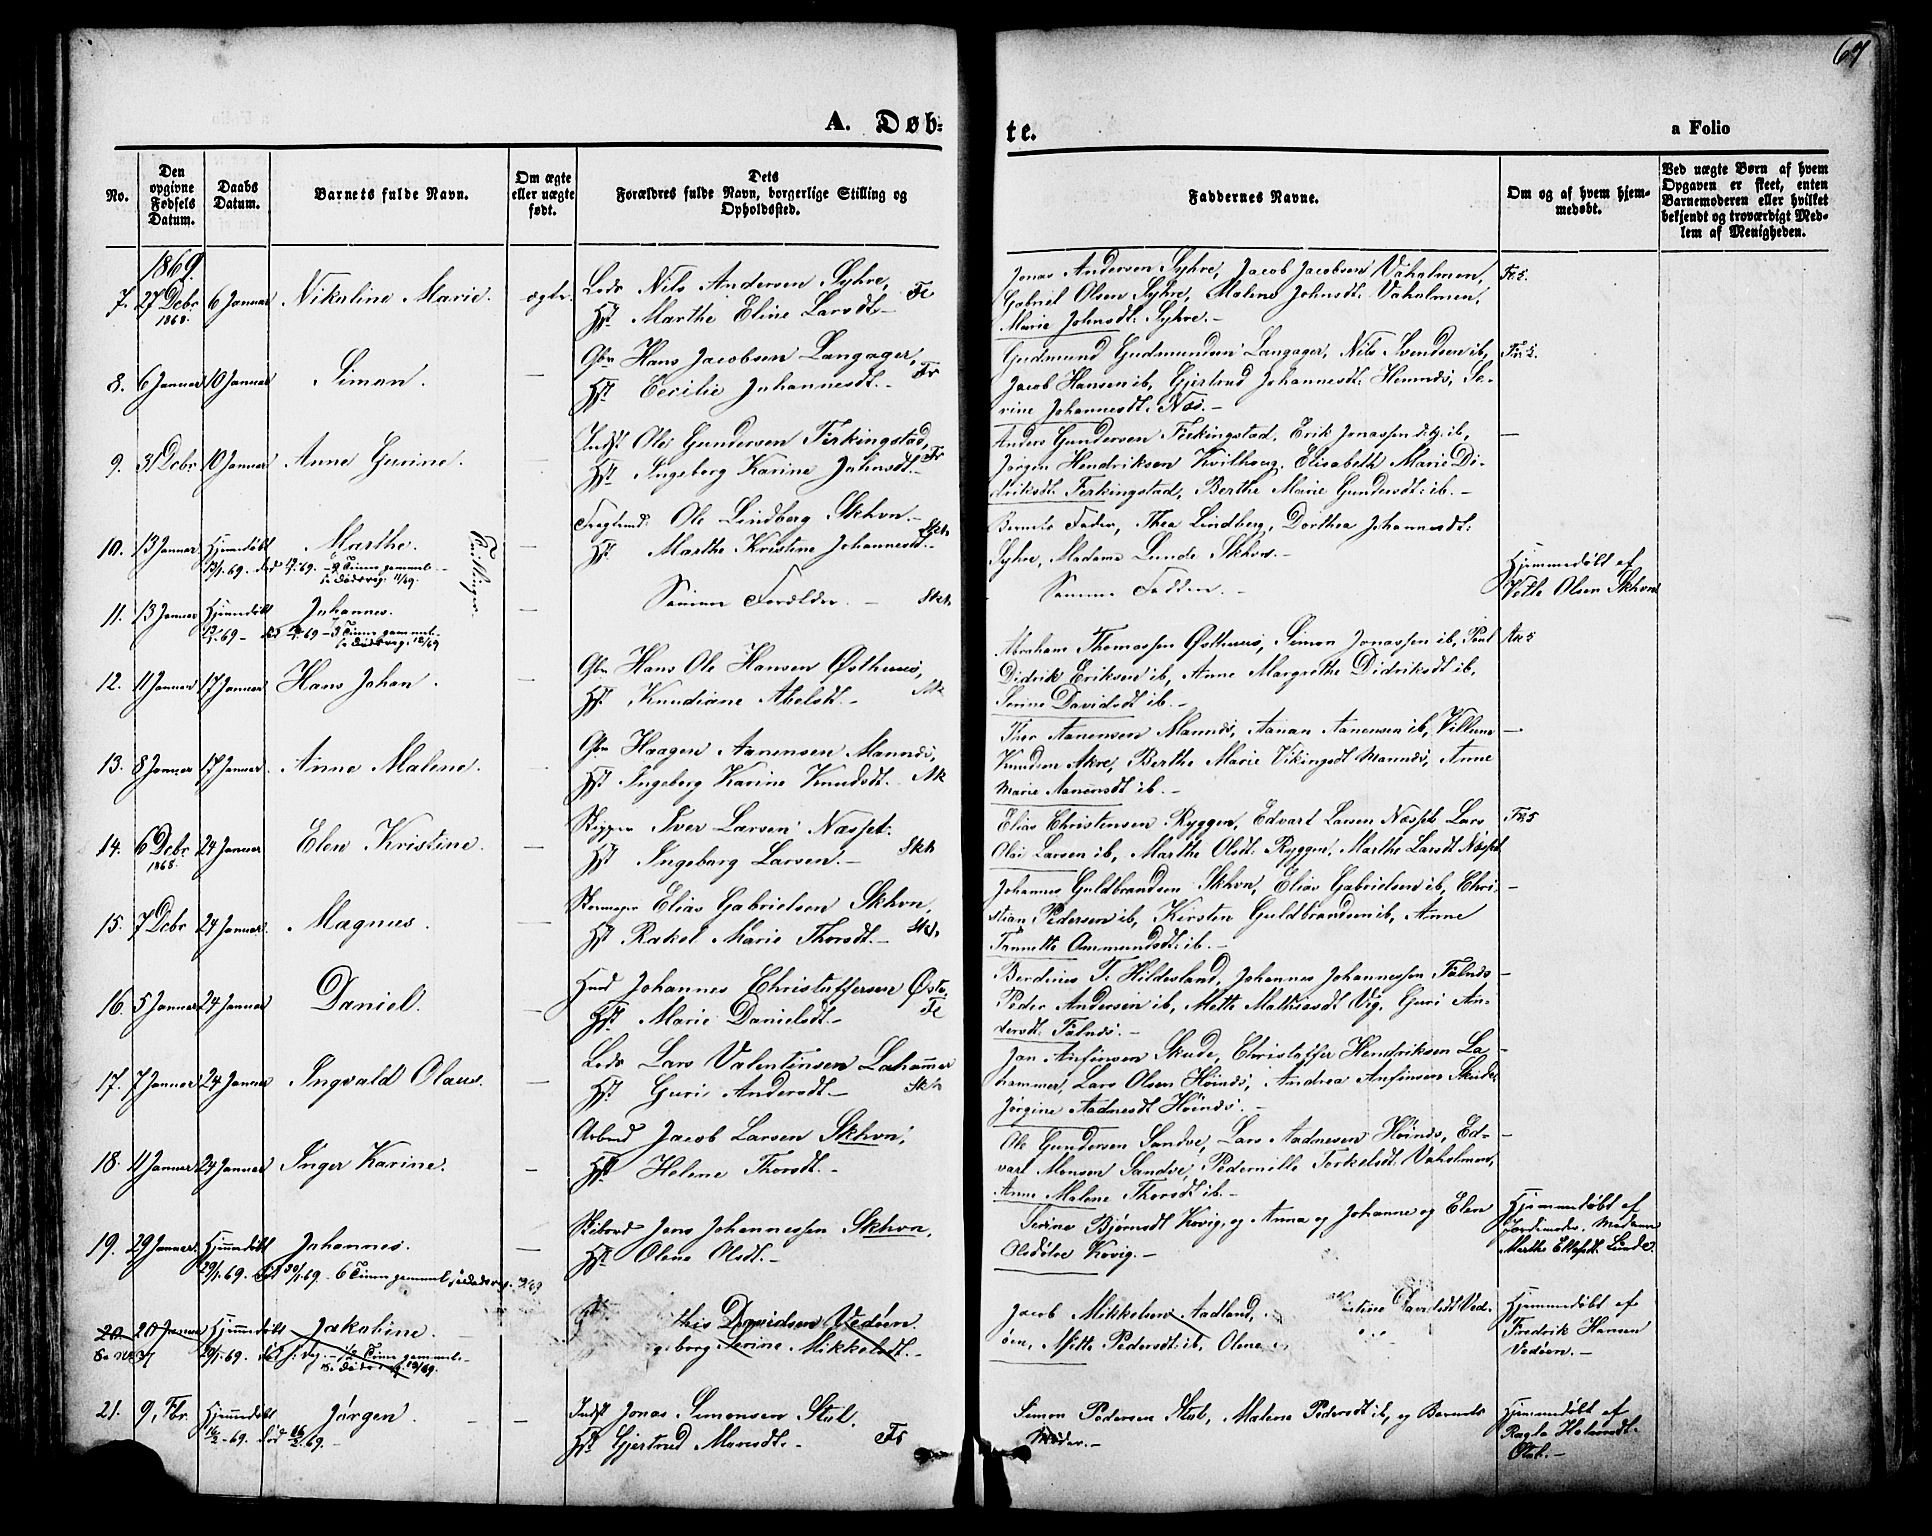 67
A. Døb-
te.
a Folio
No.
Den opgivne Fødsels Datum.
Daabs Datum.
Barnets fulde Navn.
Om ægte eller uægte født.
Dets
Forældres fulde Navn, borgerlige Stilling og
Opholdssted.
Faddernes Navne.
Om og af hvem hjem-
medøbt.
Ved uægte Børn af hvem
Opgaven er skeet, enten
Barnemoderen eller hvilket
bekjendt og troværdigt Med-
lem af Menigheden.
1869.
7. 27 Decbr 1868. 6 Januar Nikoline Marie. ægte. Nils Andersen Syhre, Fe
Hst Marthe Eline Larsdt.-
Jonas Andersen Syhre, Jacob Jacobsen Vaholmen,
Gabriel Olsen Syhre, Malene Johnsdt. Vaholmen,
Marie Johnsdt. Syhre.-
8. 6 Januar 10 Januar Simon. - Gbr Hans Jacobsen Langager,
Hst Cecilie Johannesdt.- Fr
Gudmund Gudmundsen Langager, Nils Svendsen ib,
Jacob Hansen ib, Gjertrud Johannesdt. Hemnæs, Se-
rine Johannesdt. Næs.-
9. 3 Decbr 10 Januar Anne Gurine. - Indst Ole Gundersen Ferkingstad,
Hst Ingeborg Karine Johnsdt.- Fr
Anders Gundersen Ferkingstad, Erik Jonassen ib,
Jørgen Hendriksen Kvilhoug, Elisabeth Marie Di-
driksdt. Ferkingstad, Berthe Marie Gundersdt. ib.-
10. 13 Januar Hjemmedøbt 13/1-69. Marthe. - Ole Lindberg Skhvn.-
Hst Marthe Kristine Johannesdt.- Skh
Tvillinger
Barnets Fader, Thea Lindberg, Dorthea Johannesdt.
Syhre, Madame Lunde Skhvn.-
11. 13 Januar Hjemmedøbt 13/1-69 - Johannes. - Samme Forældre. - Skh
Samme Faddere. -
Hjemmedøbt af
Olsen Skhvn
12. 11 Januar 17 Januar Hans Johan. - Gbr Hans Ole Hansen Østhuus,
Hst Knudiane Abelsdt.- Ak
Abraham Thomassen Østhuus, Simon Jonassen ib, Poul
Didrik Eriksen ib, Anne Margrethe Didriksdt ib,
Serine Davidsdt ib.-
13. 8 Januar 17 Januar Anne Malene. - Gbr Haagen Aanensen Mannæs,
Hst Ingeborg Karine Knudsdt.- Ak
Thor Aanensen Mannæs, Aanan Aanensen ib, Villum
Knudsen Akre, Berthe Marie Vikingsdt Mannæs, Anne
Marie Aanensdt ib.-
14. 6 Decbr 1868. 24 Januar Elen Kristine. - Skipper Iver Larsen Næsset.
Hst Ingeborg Larsen.- Skh
Elias Christensen Ryggen, Edvart Larsen Næsset, Lars
Olai Larsen ib, Marthe Olsdt. Ryggen, Marthe Larsdt Næsset
15. 7 Decbr 24 Januar Magnus. - Elias Gabrielsen Skhvn,
Hst Rakel Marie Thorsdt.- Skh
Johannes Guldbrandsen Skhvn, Elias Gabrielsen ib, Chri-
stian Pedersen ib, Kirsten Guldbrandsen ib, Anne
Tonnette Ammundsdt. ib.-
16. 5 Januar 24 Januar Daniel. - Hmd Johannes Christoffersen
Hst Marie Danielsdt.- Fe
Berdines T. Hildesland, Johannes Johannessen Falnæs
Peder Andersen ib, Mette Mathiasdt Vig, Guri An-
dersdt. Falnæs.-
17. 7 Januar 24 Januar Ingvald Olaus. - Lars Valentinsen Lahammer
Hst Guri Andersdt.- Skh
Jan Anfinsen Skude, Christoffer Hendriksen La-
hammer, Lars Olsen Høinæs, Andrea Anfinsen Skude
Jørgine Aadnesdt Høinæs.-
18. 11 Januar 24 Januar Inger Karine. - Arbmd Jacob Larsen Skhvn,
Hst Helene Thorsdt.-
Ole Gundersen Sandve, Lars Aadnesen Høinæs, Ed-
vart Monsen Sandve, Pedernille Torkelsdt. Vaholmen,
Anne Malene Thorsdt ib.-
19. 29 Januar. Hjemmedøbt 29/1-69. Johannes. død 30/1-69. 6 Timer gammel. Jens Johannessen Skhvn,
Hst Olene Olsdt.-
Serine Bjørnsdt Kovig, og Anna og Johanne og Elen
Kovig.-
Hjemmedøbt af
Jordemoder, Madame
Marthe Lunde.
20. 20 Januar Hjemmedøbt Jakobine. Davidsen Vedøen.
Serine Mikkelsdt.-
Jacob Mikkelsen Aadland, Davidsdt Ved-
øen, Mette Pedersdt. ib, Olene
Hjemmedøbt af
Fredrik Hansen
Vedøen.-
21. 9, Fbr. Hjemmedøbt 16/2-69. Jørgen. død 16/2 69.- - Indst Jonas Simonsen Stol.
Hst Gjertrud Monsdt.- Fr
Simon Pedersen Stol, Malene Pedersdt ib, og Barnets
Moder.-
Hjemmedøbt af